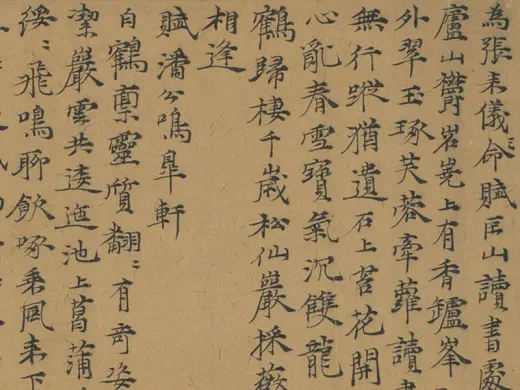 為張来儀命賦匡山讀書處
廬山欝岧嶤上有香鑪峯
外翠玉琢芙蓉牽蘿讀書
無行蹤猶遺石上苔花開
心亂春雪寶氣沉雙龍
鶴歸棲千歲松仙巖採薇
相逢
賦潘公鳴皐軒
白鶴稟靈質翻〻有奇姿
潔巖雲共逶迤池上菖蒲
綏〻飛鳴聊飲啄乘風来下